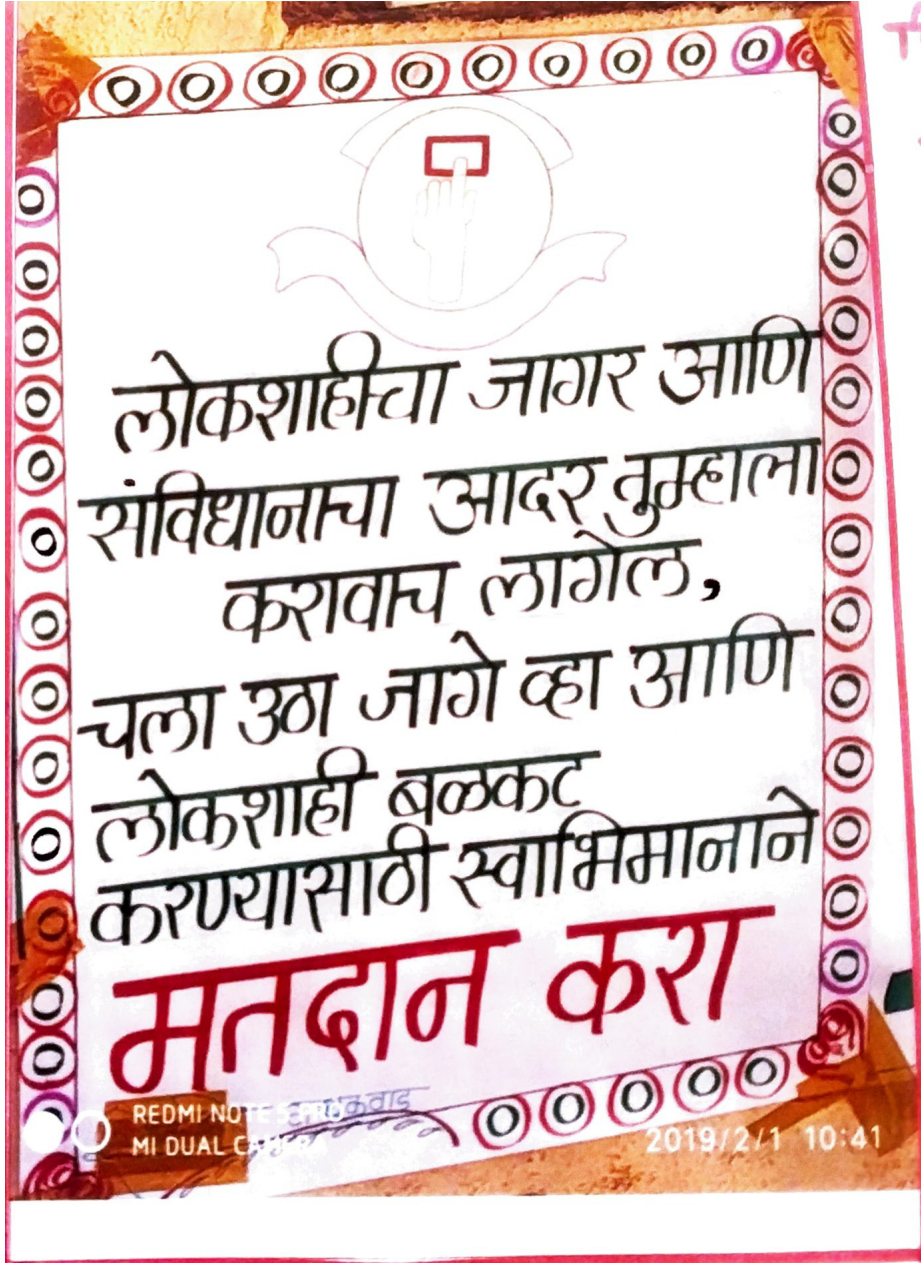 लोकशाहीचा जागर आणि
संविधानाचा आदर तुम्हाला
करावाच लागेल,
चला उठा जागे व्हा आणि
लोकशाही बळकट
करण्यासाठी स्वाभिमानाने
मतदान करा
REDMI NOTE 5 PRO
MI DUAL CAMERA
2019/2/1 10:41